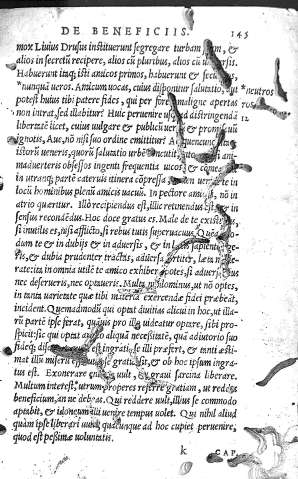 DE BENEFICIIS. 145
mox Liuius Drusus instituerunt segregare turbam suam, &
alios in secretū recipere, alios cū pluribus, alios cū uniuersis.
Habuerunt itaq; isti amicos primos, habuerunt & secundos,
*nunquā ueros. Amicum uocas, cuius disponitur salutatio, aut *neutros
potest huius tibi patere fides, qui per fores maligne apertas
non intrat, sed illabitur? Huic peruenire usq; ad distringendā 12
libertatē licet, cuius uulgare & publicū uerbum & promiscuū
ignotis, Aue, nō nisi suo ordine emittitur? Ad quencunq;
istorū ueneris, quorū salutatio urbē concutit,
maduerteris obsessos ingenti frequentia uicos, & commeantiū
in utranq; partē cateruis itinera compressa, tamen uenire te in
locū hominibus plenū, amicis uacuū. In pectore amicus, nō in
atrio quæritur. Illo recipiendus est, illic retinendus est, & in
sensus recondēdus. Hoc doce, gratus es. Male de te existimas,
si inutilis es, nisi afflicto, si rebus tutis superuacuus. Quemadmodum
dum te & in dubijs & in aduersis, & in lætis sapienter geris,
ut & dubia prudenter tractes, aduersa fortiter, læta moderate:
ita in omnia utilē te amico exhibere potes, si aduersa eius
nec deserueris, nec optaueris. Multa nihilominus, ut nō optes,
in tanta uarietate quæ tibi materiā exercendæ fidei præbeāt,
incident. Quemadmodū qui optat diuitias alicui in hoc, ut illarū
partē ipse ferat, quāuis pro illo uideatur optare, sibi prospicit:
sic qui optat amico aliquā necessitatē, quā adiutorio suo
fideq; discutiat, quod est ingrati, se illi præfert, & tanti æstimat
illū miserū esse, ut ipse gratus sit, ob hoc ipsum ingratus
est. Exonerare enim se uult, & graui sarcina liberare.
Multum interest, utrum properes referre gratiam, ut reddas
beneficium, an ne debeas. Qui reddere uult, illius se commodo
aptabit, & idoneum illi uenire tempus uolet. Qui nihil aliud
quàm ipse liberari uult, quacunque ad hoc cupiet peruenire,
quod est pessimæ uoluntatis.
k CAP.